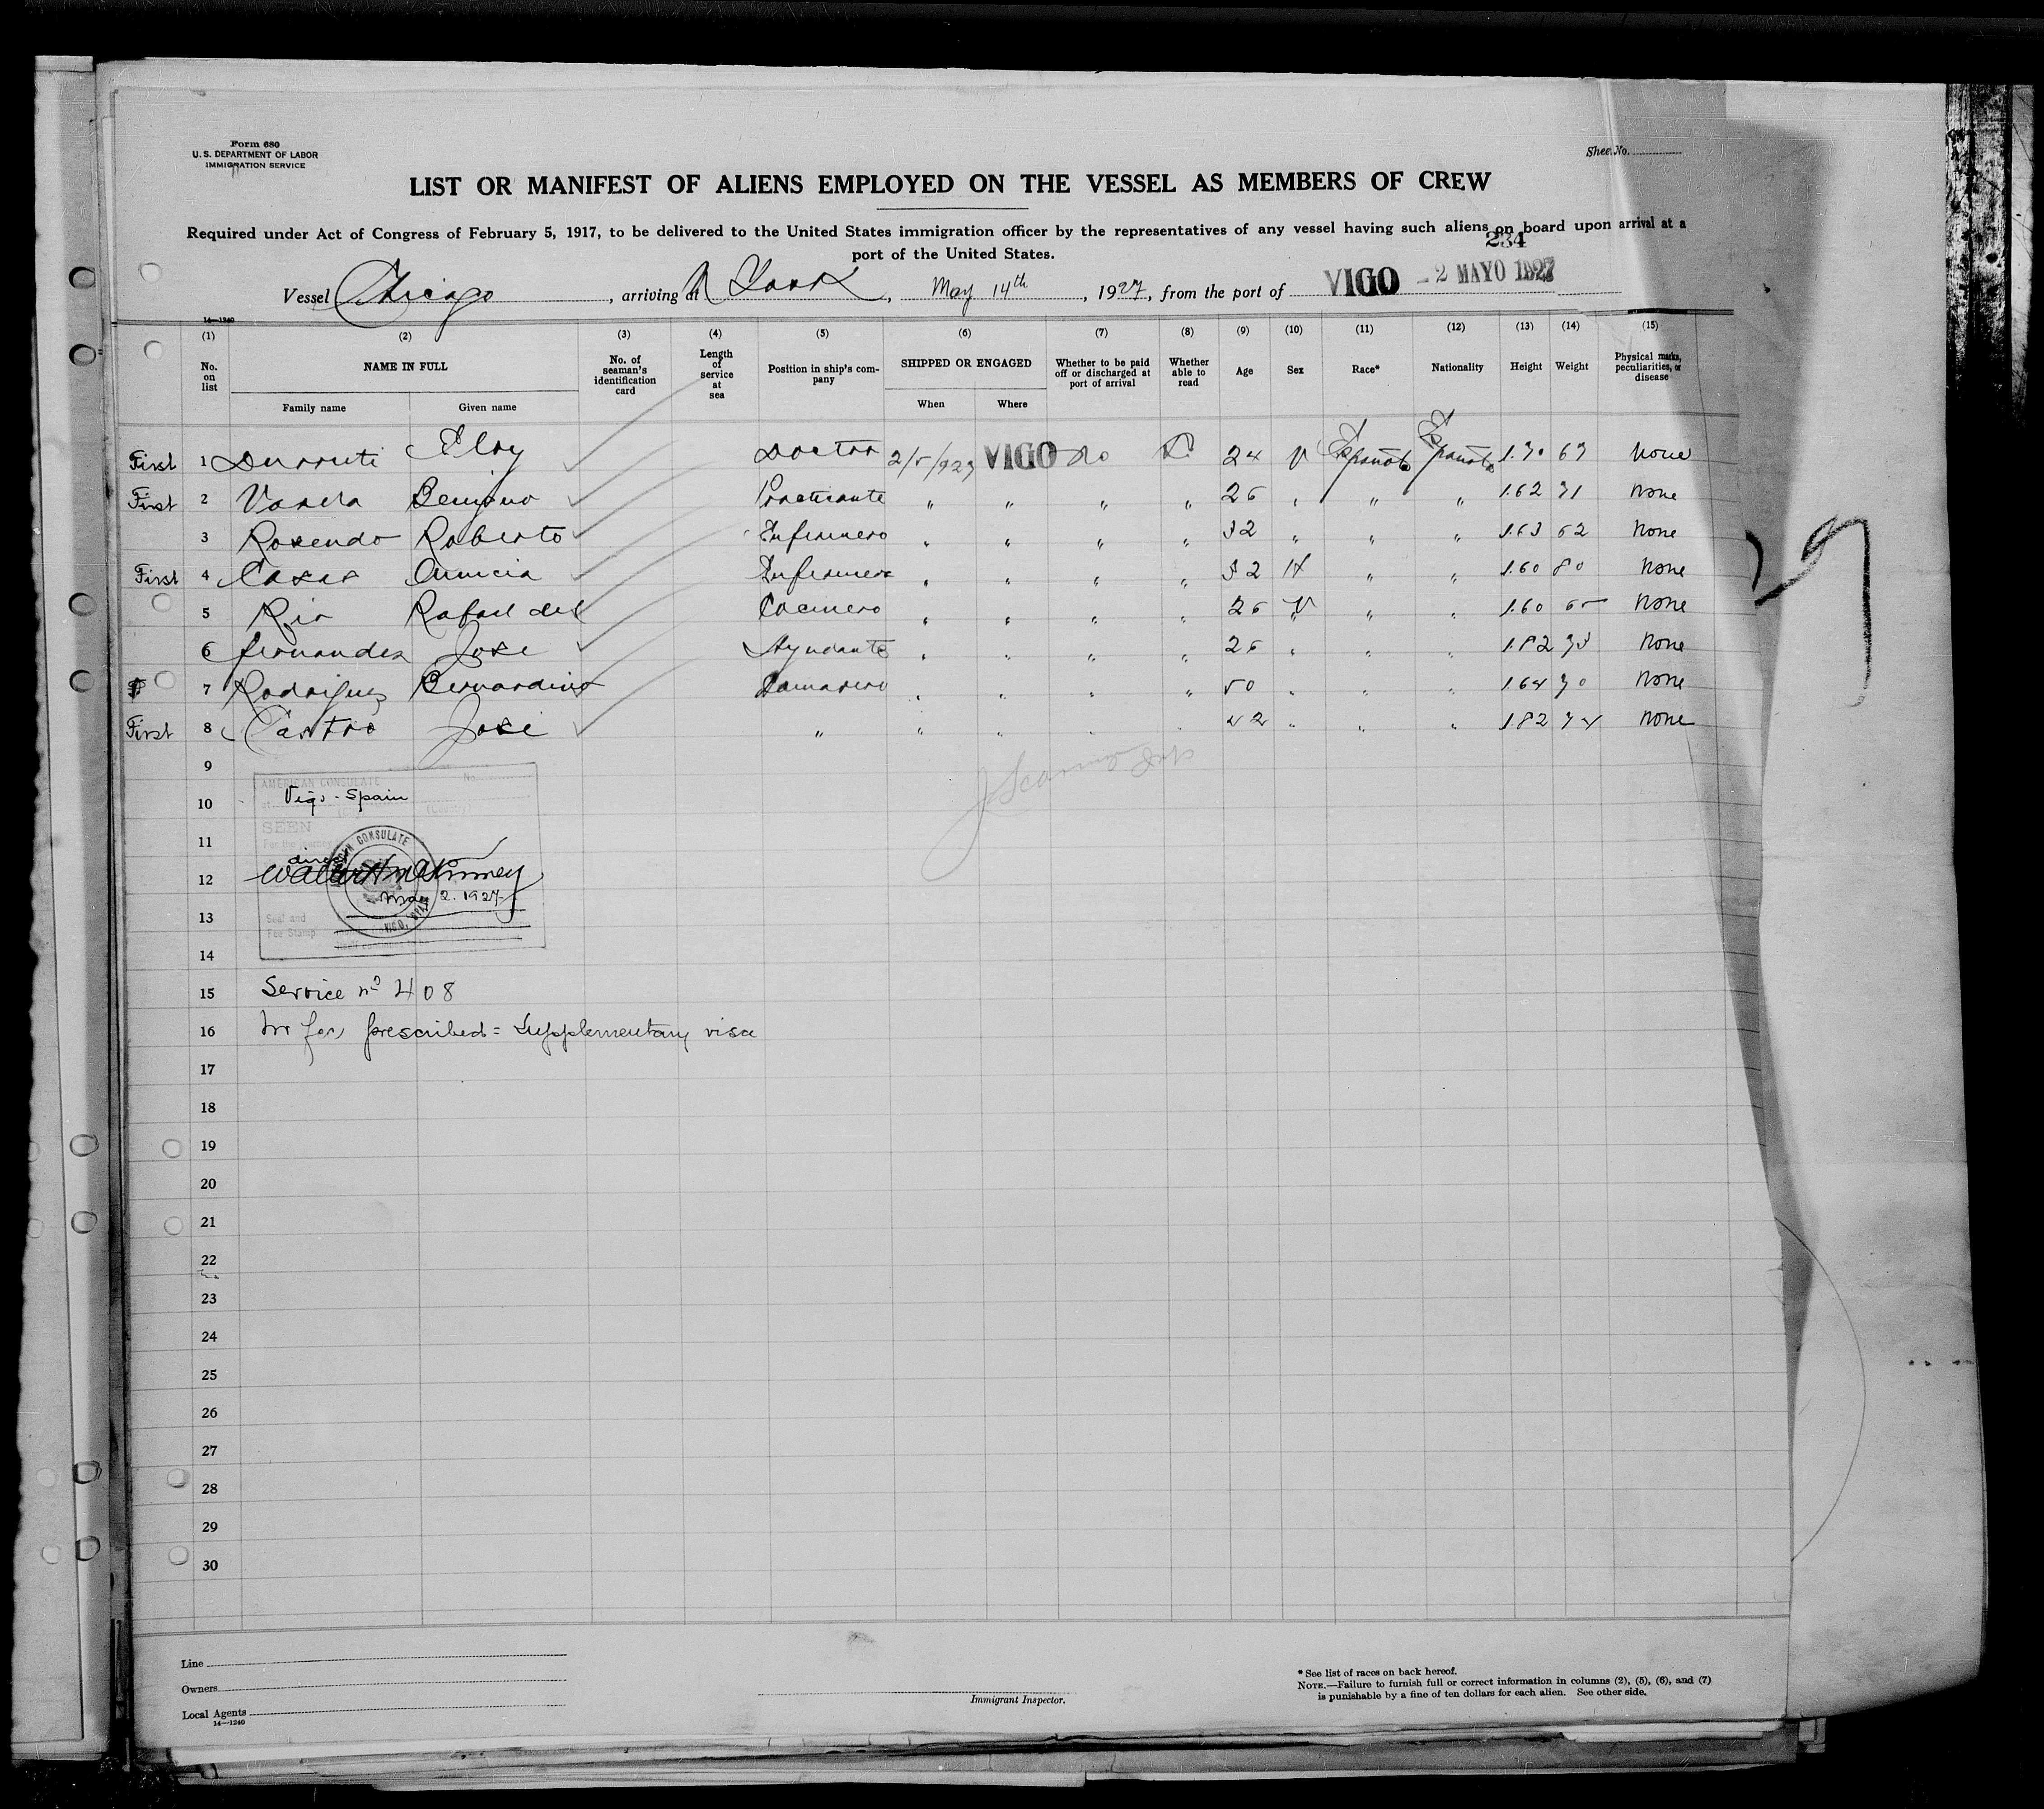 Form 680
U. S. DEPARTMENT OF LABOR
IMMIGRATION SERVICE
Sheet No.
LIST OR MANIFEST OF ALIENS EMPLOYED ON THE VESSEL AS MEMBERS OF CREW
Required under Act of Congress of February 5, 1917, to be delivered to the United States immigration officer by the representatives of any vessel having such aliens on board upon arrival at a
port of the United States.
234
Vessel Chicago, arriving at N York, May 14th, 1927, from the port of VIGO - 2 MAYO 1927
14—1240
(1) (2) (3) (4) (5) (6) (7) (8) (9) (10) (11) (12) (13) (14) (15)
No. on list
NAME IN FULL
Family name
Given name
No. of seaman's identification card
Length of service at sea
Position in ship's company
SHIPPED OR ENGAGED
When
Where
Whether to be paid off or discharged at port of arrival
Whether able to read
Age
Sex
Race*
Nationality
Height
Weight
Physical marks, peculiarities, or disease
First 1 Durruti Eloy Doctor 2/5/927 VIGO No 24 V Española Española 1.70 67 None
First 2 Varela Benigno Practicante " " " " 26 " " " 1.62 71 None
3 Rosendo Roberto Enfermero " " " " 32 " " " 1.63 62 None
First 4 Casas Enfermera " " " " 32 H " " 1.60 80 None
5 Rio Rafael del Cocinero " " " " 26 V " " 1.60 65 None
6 Fernandez Jose Ayudante " " " " 26 " " " 1.82 None
7 Rodriguez Bernardino Camarero " " " " 50 " " " 1.64 70 None
First 8 Castro Jose " " " " " 42 " " " 1.82 74 None
9
AMERICAN CONSULATE No.
10 Vigo - Spain
(Country)
SEEN
11 For the journey
AMERICAN CONSULATE
direct
12
May 2. 1927
13 Seal and
Fee Stamp
VIGO, SPAIN
14
15 Service nº 408
16 No fee prescribed = Supplementary visa
17
18
19
20
21
22
23
24
25
26
27
28
29
30
Line
Owners
Local Agents
14—1240
Immigrant Inspector.
* See list of races on back hereof.
NOTE.—Failure to furnish full or correct information in columns (2), (5), (6), and (7)
is punishable by a fine of ten dollars for each alien. See other side.